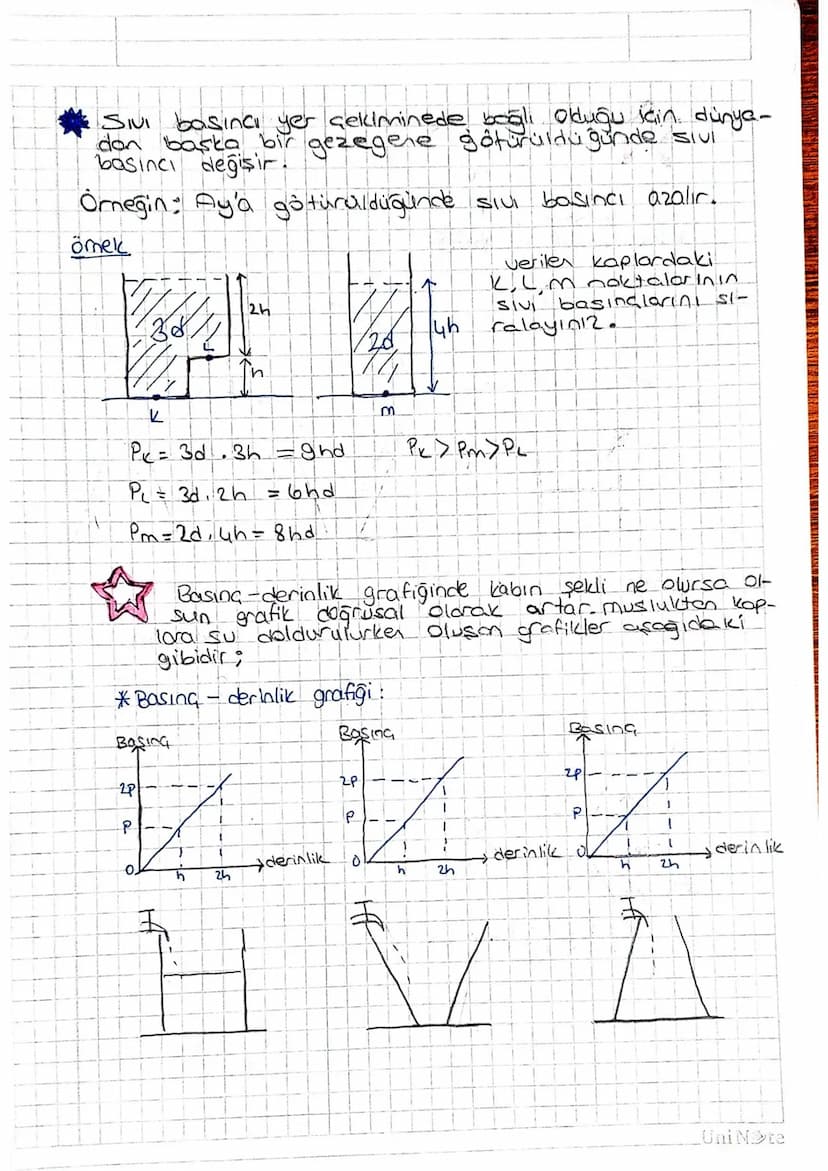 Sıvı basıncı yer çekiminede bağlı olduğu için dünya-
dan başka bir gezegene götürüldüğünde sıvı
basıncı değişir.
Örneğin: Ay'a götürüldüğünde sıvı basıncı azalır.
örnek
verilen kaplardaki
K, L, m noktalarının
sıvı basınçlarını sı-
ralayınız.
3d
2h
L
h
K
2d
4h
m
PK = 3d . 3h = 9hd
PK > Pm > PL
PL = 3d . 2h = 6hd
Pm = 2d . 4h = 8hd
Basınç-derinlik grafiğinde kabın şekli ne olursa ol-
sun grafik doğrusal olarak artar. musluktan kap-
lara su doldurulurken oluşan grafikler aşağıdaki
gibidir;
* Basınç - derinlik grafiği:
Basınç
2P
P
0
h
2h
derinlik
Basınç
2P
P
0
h
2h
derinlik
Basınç
2P
P
0
h
2h
derinlik
UniNote